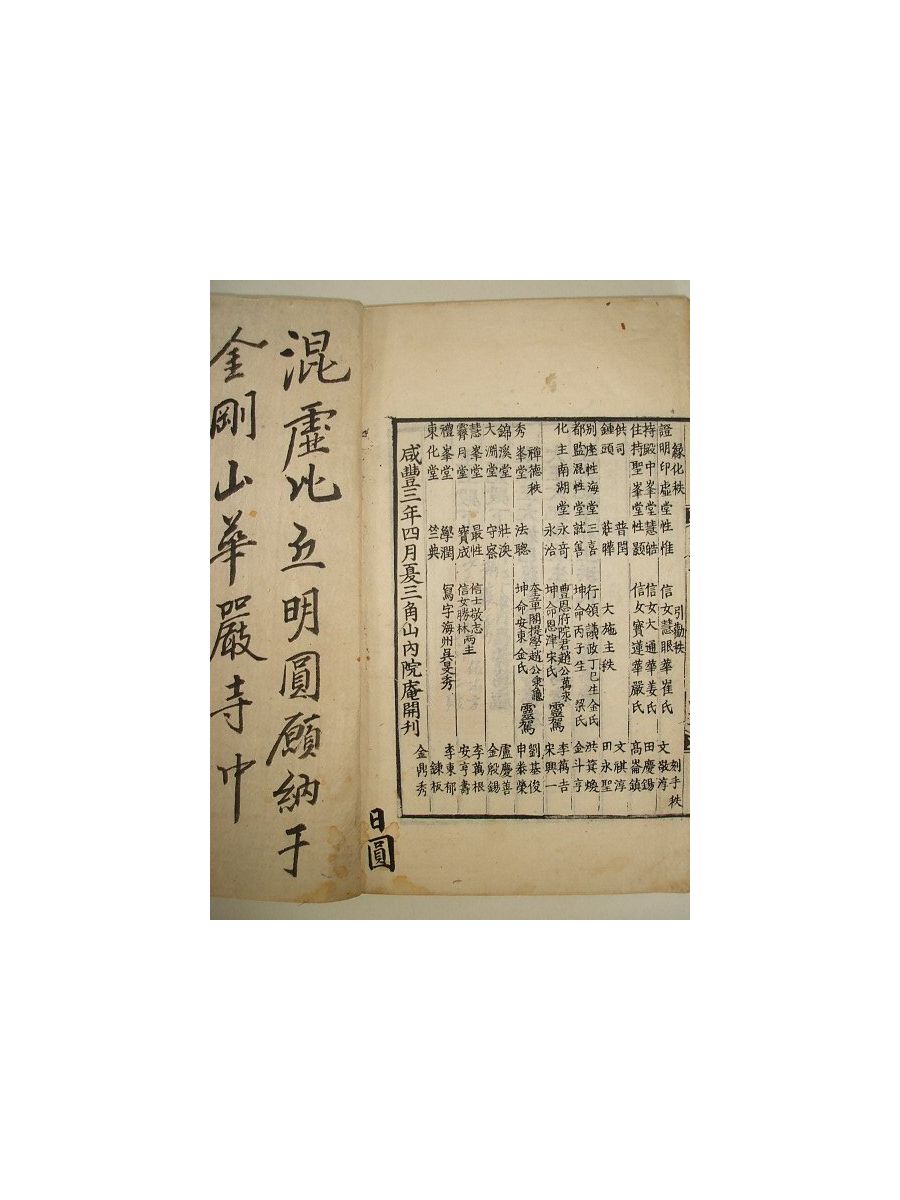 緣化秩
證明印虛堂性惟
持殿中峯堂慧皓
住持聖峯堂性顥
供司 普閏
鍾頭 莊曄
別座性海堂三喜
都監混性堂就善
化主南湖堂永奇
永洽
禪德秩
秀峯堂 法聰
錦溪堂 壯渙
大淵堂 守察
慧峯堂 最性
霽月堂 寶成
禮峯堂 學潤
東化堂 竺典
引勸秩
信女慧眼華崔氏
信女大通華姜氏
信女寶蓮華嚴氏
大施主秩
行領議政丁巳生金氏
坤命丙子生梁氏
豊恩府院君趙公萬永
坤命恩津宋氏 靈駕
奎章閣提學趙公秉龜
坤命安東金氏 靈駕
信士敬志
信女勝林 兩主
寫字海州吳旻秀
刻手秩
文敬淳
田慶錫
高崙鎮
文祺淳
田永聖
洪箕煥
金斗亨
李萬吉
宋興一
劉基俊
申泰榮
盧慶善
金殷錫
李萬根
安亨壽
李東郁
鍊板
金鼎秀
咸豐三年四月夏三角山內院庵開刊
混虛比丘明圓願納于
金剛山華嚴寺中
日圓